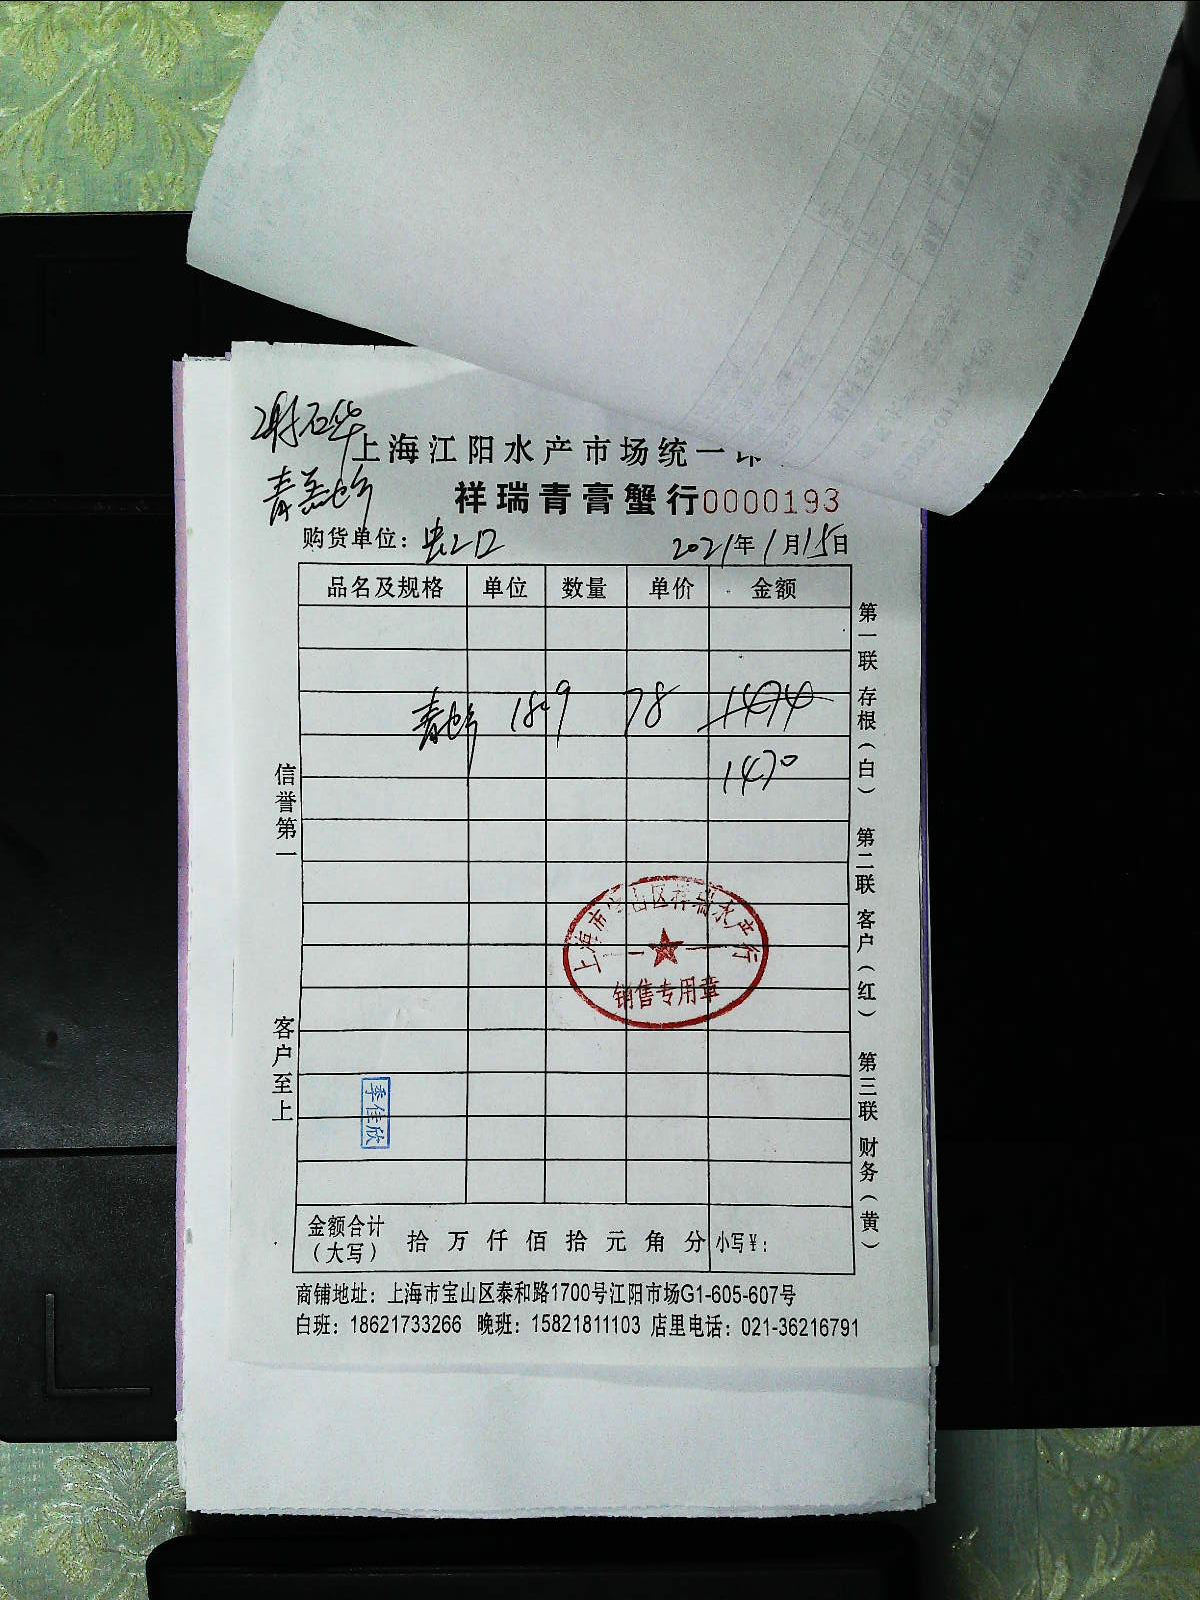 上海江阳水产市场统一
祥瑞青膏蟹行0000193
购货单位：虹口 2021年1月15日
品名及规格 单位 数量 单价 金额
青蟹 18.9 78 1474
1470
信誉第一
客户至上
第一联 存根（白） 第二联 客户（红） 第三联 财务（黄）
上海市宝山区祥瑞水产行
销售专用章
季佳欣
金额合计（大写） 拾 万 仟 佰 拾 元 角 分 小写¥：
商铺地址：上海市宝山区泰和路1700号江阳市场G1-605-607号
白班：18621733266 晚班：15821811103 店里电话：021-36216791